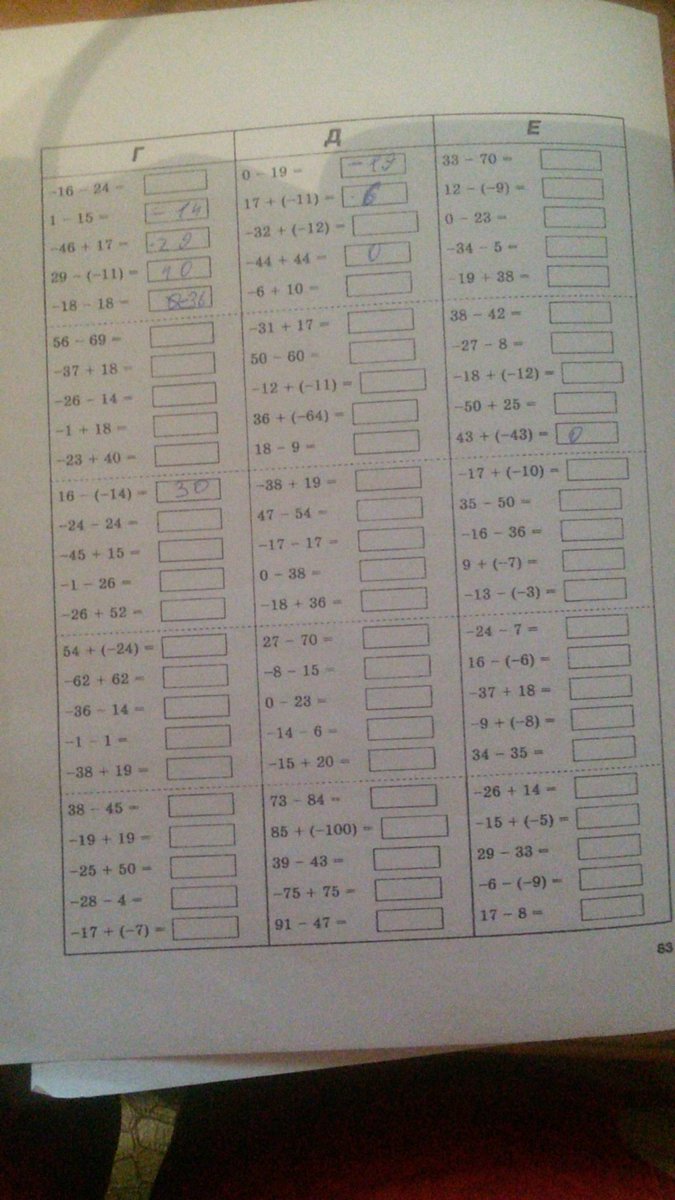 Г
-16 - 24 =
1 - 15 = -14
-46 + 17 = -29
29 - (-11) = 10
-18 - 18 = -36
56 - 69 =
-37 + 18 =
-26 - 14 =
-1 + 18 =
-23 + 40 =
16 - (-14) = 30
-24 - 24 =
-45 + 15 =
-1 - 26 =
-26 + 52 =
54 + (-24) =
-62 + 62 =
-36 - 14 =
-1 - 1 =
-38 + 19 =
38 - 45 =
-19 + 19 =
-25 + 50 =
-28 - 4 =
-17 + (-7) =
Д
0 - 19 = -19
17 + (-11) = 6
-32 + (-12) =
-44 + 44 = 0
-6 + 10 =
-31 + 17 =
50 - 60 =
-12 + (-11) =
36 + (-64) =
18 - 9 =
-38 + 19 =
47 - 54 =
-17 - 17 =
0 - 38 =
-18 + 36 =
27 - 70 =
-8 - 15 =
0 - 23 =
-14 - 6 =
-15 + 20 =
73 - 84 =
85 + (-100) =
39 - 43 =
-75 + 75 =
91 - 47 =
Е
33 - 70 =
12 - (-9) =
0 - 23 =
-34 - 5 =
-19 + 38 =
38 - 42 =
-27 - 8 =
-18 + (-12) =
-50 + 25 =
43 + (-43) = 0
-17 + (-10) =
35 - 50 =
-16 - 36 =
9 + (-7) =
-13 - (-3) =
-24 - 7 =
16 - (-6) =
-37 + 18 =
-9 + (-8) =
34 - 35 =
-26 + 14 =
-15 + (-5) =
29 - 33 =
-6 - (-9) =
17 - 8 =
83